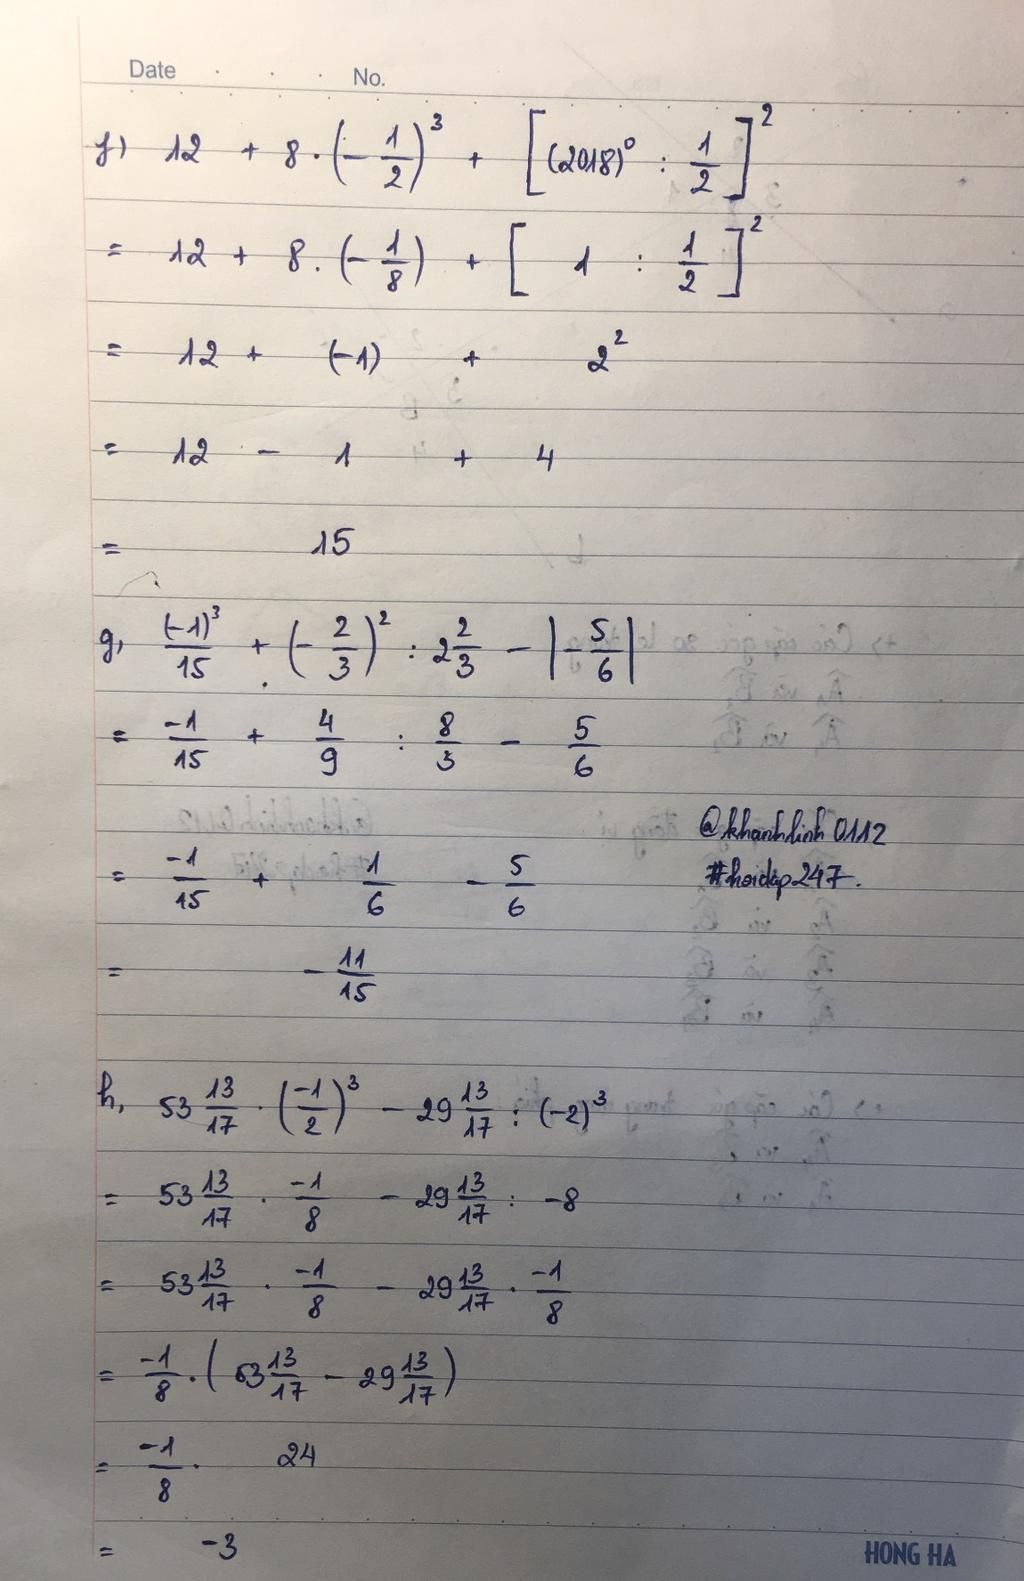 Date No.
f) 12 + 8 . (-1/2)^3 + [(2018)^0 : 1/2]^2
= 12 + 8 . (-1/8) + [ 1 : 1/2 ]^2
= 12 + (-1) + 2^2
= 12 - 1 + 4
= 15
g, (-1)^3/15 + (-2/3)^2 : 2 2/3 - |-5/6|
= -1/15 + 4/9 : 8/3 - 5/6
@khanhlinh0112
= -1/15 + 1/6 - 5/6
#hoidap247.
= -11/15
h, 53 13/17 . (-1/2)^3 - 29 13/17 : (-2)^3
= 53 13/17 . -1/8 - 29 13/17 : -8
= 53 13/17 . -1/8 - 29 13/17 . -1/8
= -1/8 . (53 13/17 - 29 13/17)
= -1/8 . 24
= -3
HONG HA